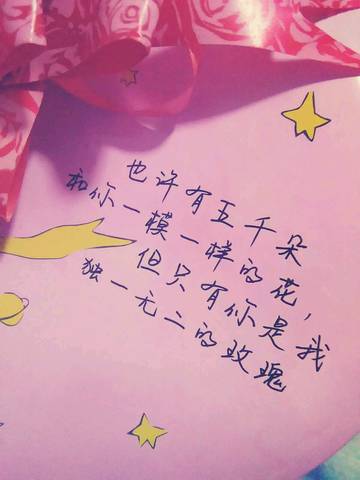 也许有五千朵
和你一模一样的花，
但只有你是我
独一无二的玫瑰